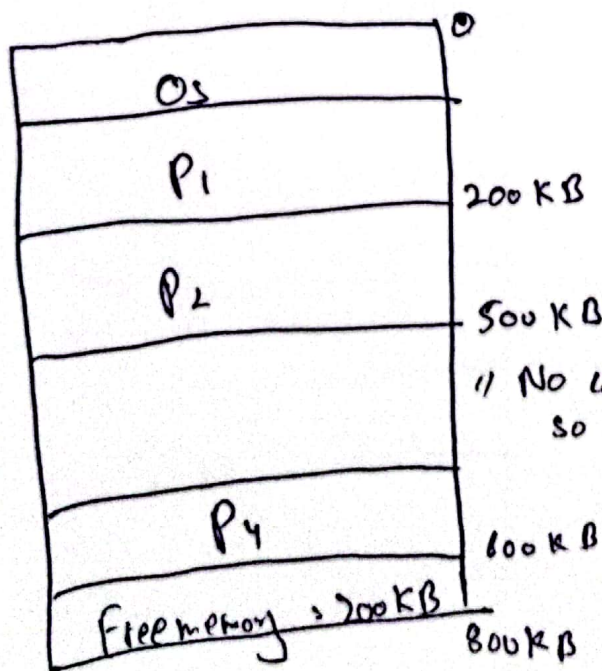 0
OS
P1
200 KB
P2
500 KB
// No
so
P4
600 KB
Free memory : 200KB
800KB